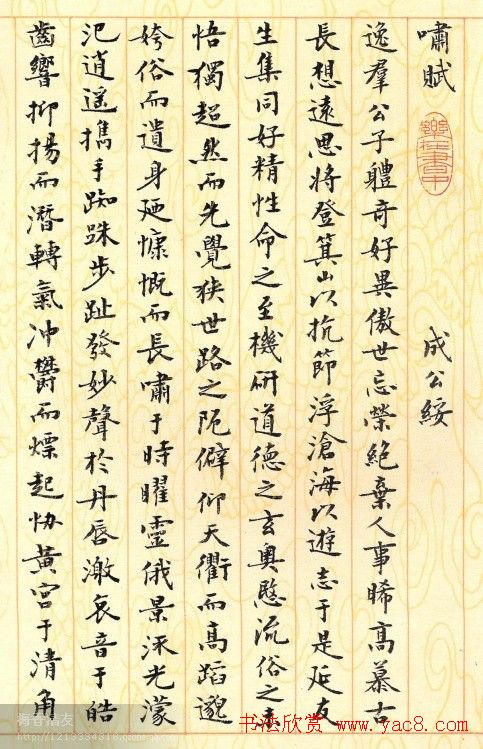 嘯賦
樂在書中
成公綏
逸羣公子體奇好異傲世忘榮絕棄人事睎高慕古
長想遠思將登箕山以抗節浮滄海以遊志于是延友
生集同好精性命之至機研道德之玄奧愍流俗之未
悟獨超然而先覺狹世路之阨僻仰天衢而高蹈邈
姱俗而遺身廼慷慨而長嘯于時曜靈俄景流光濛
汜逍遙攜手踟跦步趾發妙聲於丹脣激哀音于皓
齒響抑揚而潛轉氣冲鬱而熛起協黃宮于清角
书法欣赏 www.yac8.com